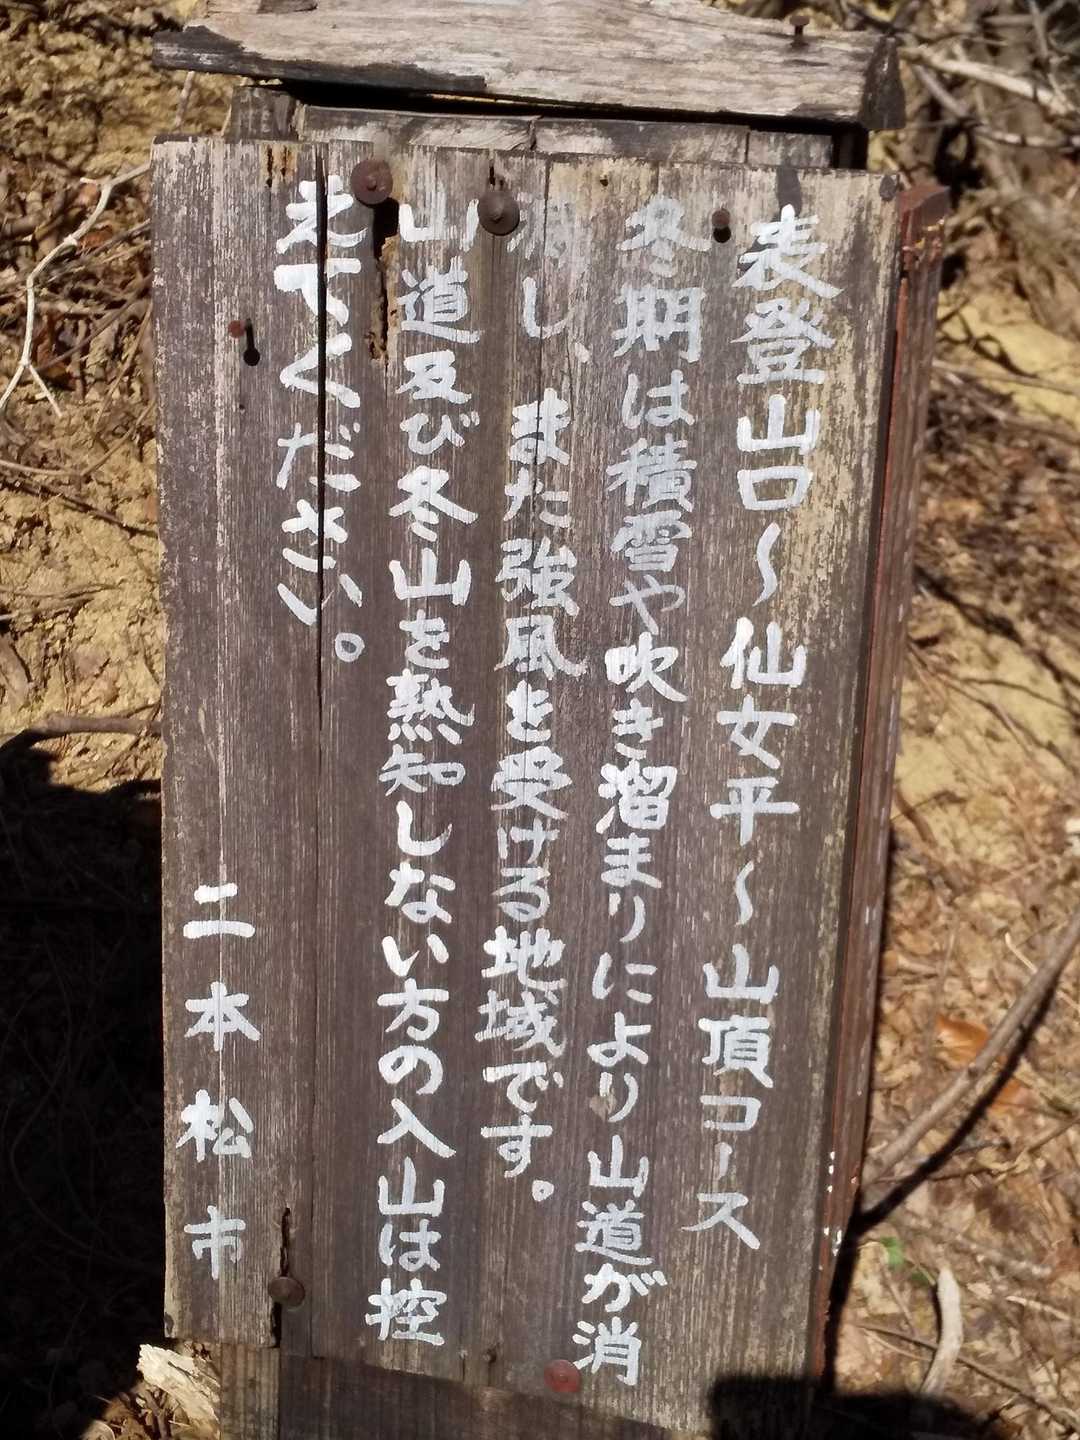 表登山口～仙女平～山頂コース
冬期は積雪や吹き溜まりにより山道が消
滅し、また強風を受ける地域です。
山道及び冬山を熟知しない方の入山は控
えてください。
二本松市